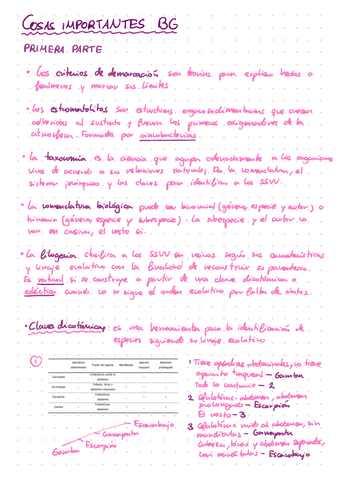 COSAS IMPORTANTES BG
PRIMERA PARTE
• Los criterios de demarcación son teorías para explicar hechos o
fenómenos y marcar sus límites
• Los estromatolitos son estructuras organosedimentarias que crecen
adheridas al sustrato y fueron los primeros oxigenadores de la
atmósfera. Formados por cianobacterias
• La taxonomía es la ciencia que agrupa ordenadamente a los organismos
vivos de acuerdo a sus relaciones naturales. Da la nomenclatura, el
sistema jerárquico y las claves para identificar a los SSVV.
• La nomenclatura biológica puede ser binomial (género, especie y autor) o
trinomia (género, especie y subespecie). La subespecie y el autor no
van en cursiva, el resto sí.
• La filogenia clasifica a los SSVV en reinos según sus características
y linaje evolutivo con la finalidad de reconstruir su parentesco.
Es natural si se construye a partir de una clave dicotómica o
ecléctica cuando no se sigue el orden evolutivo por falta de datos.
• Claves dicotómicas: es una herramienta para la identificación de
especies siguiendo su linaje evolutivo
Apéndices abdominales Fusión de tagmas Mandíbulas Aparato traqueal Abdomen prolongado
Cefalotórax unido al abdomen
Escarabajo Cabeza, tórax y abdomen separados
Escorpión Cefalotórax abdomen
Gamba Cefalotórax abdomen
Escarabajo
Escorpión
Gamba
1 Tiene apéndices abdominales, no tiene
aparato traqueal - Gamba
Todo lo contrario - 2
2 Cefalotórax-abdomen, abdomen
prolongado - Escorpión
El resto - 3
3 Cefalotórax unido al abdomen, sin
mandíbulas -
Cabeza, tórax y abdomen separados,
con mandíbulas - Escarabajo